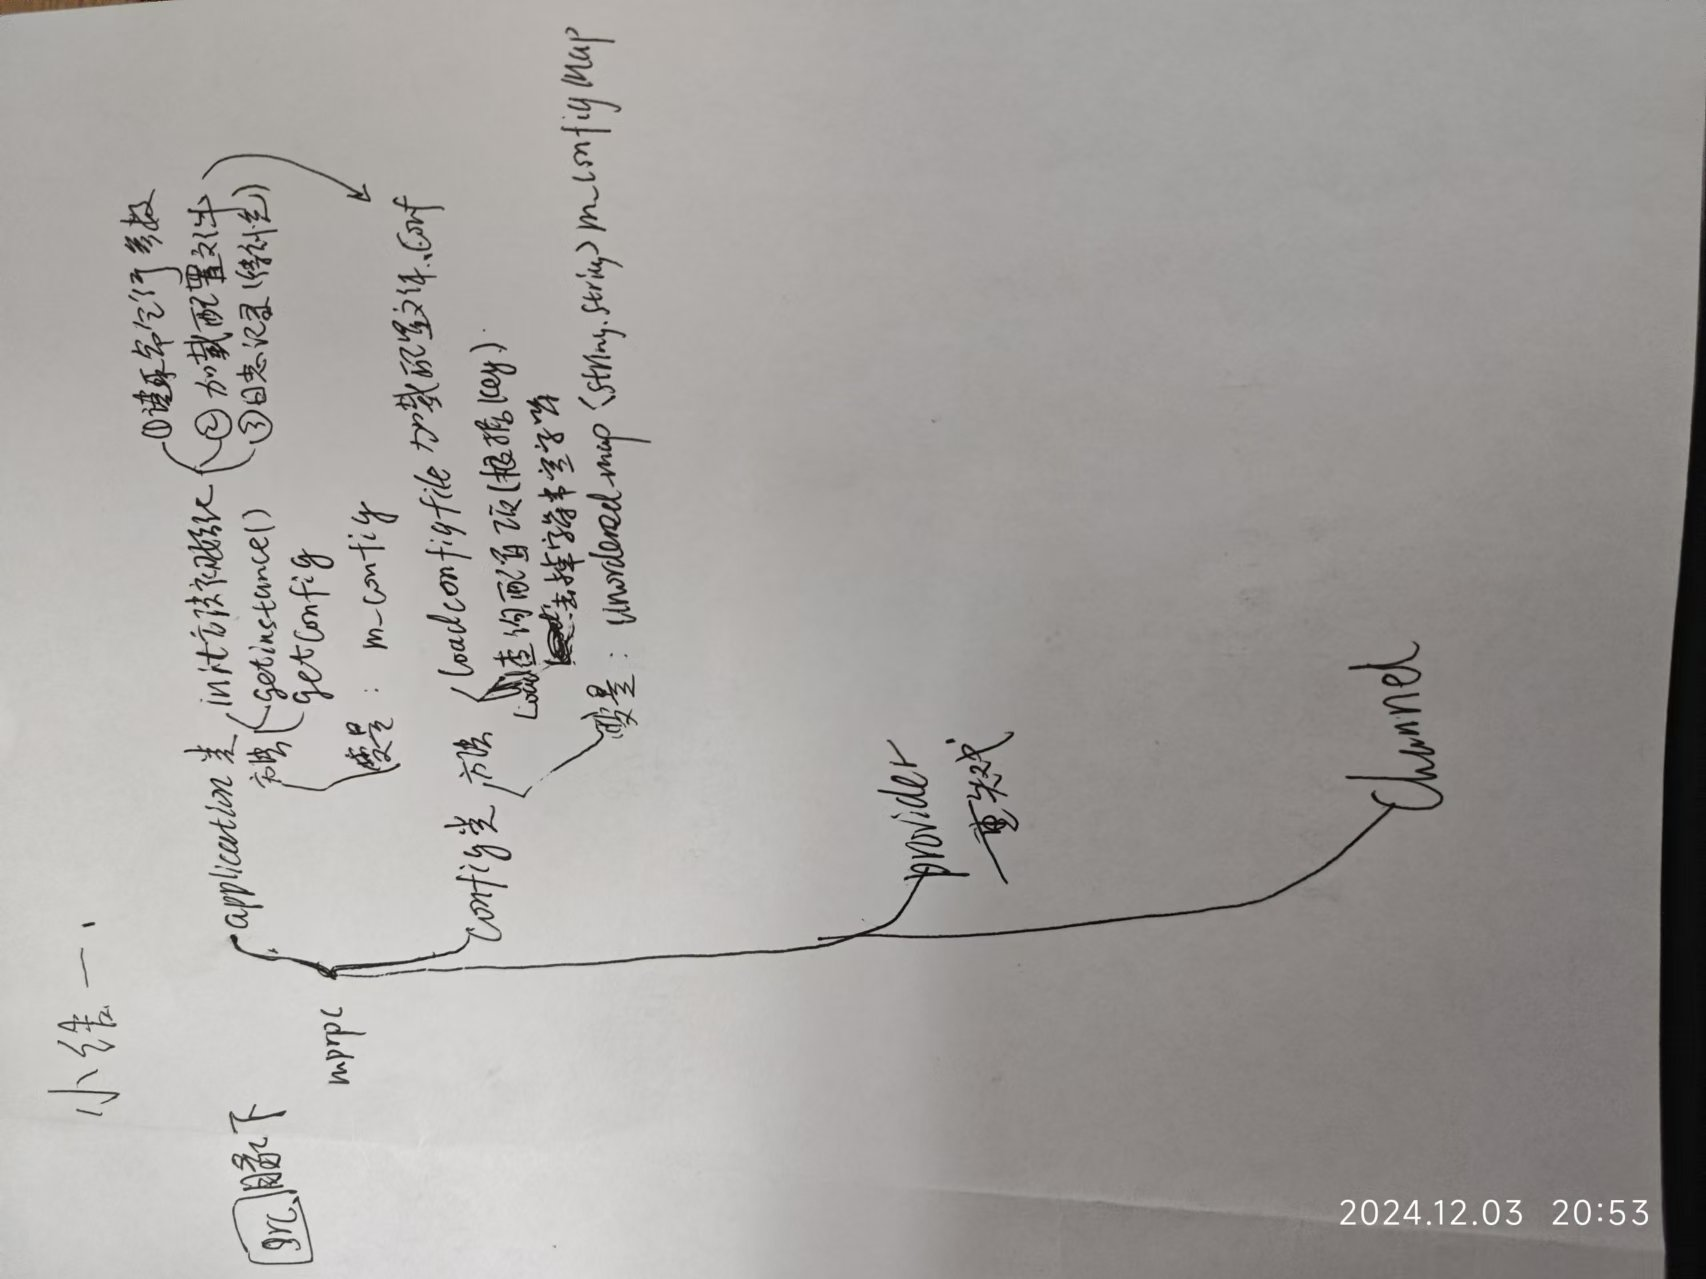 小结一.
src 目录下
mprpc
application类
方法
init方法初始化
①读取命令行参数
②加载配置文件
③日志记录(待补充)
getinstance()
getConfig
变量: m_config
Config类
方法
Loadconfigfile 加载配置文件.conf
Load查询配置项(根据key).
去掉字符串空字符
变量: unordered_map<string,string> m_configMap
provider
重头戏
Channel
2024.12.03 20:53